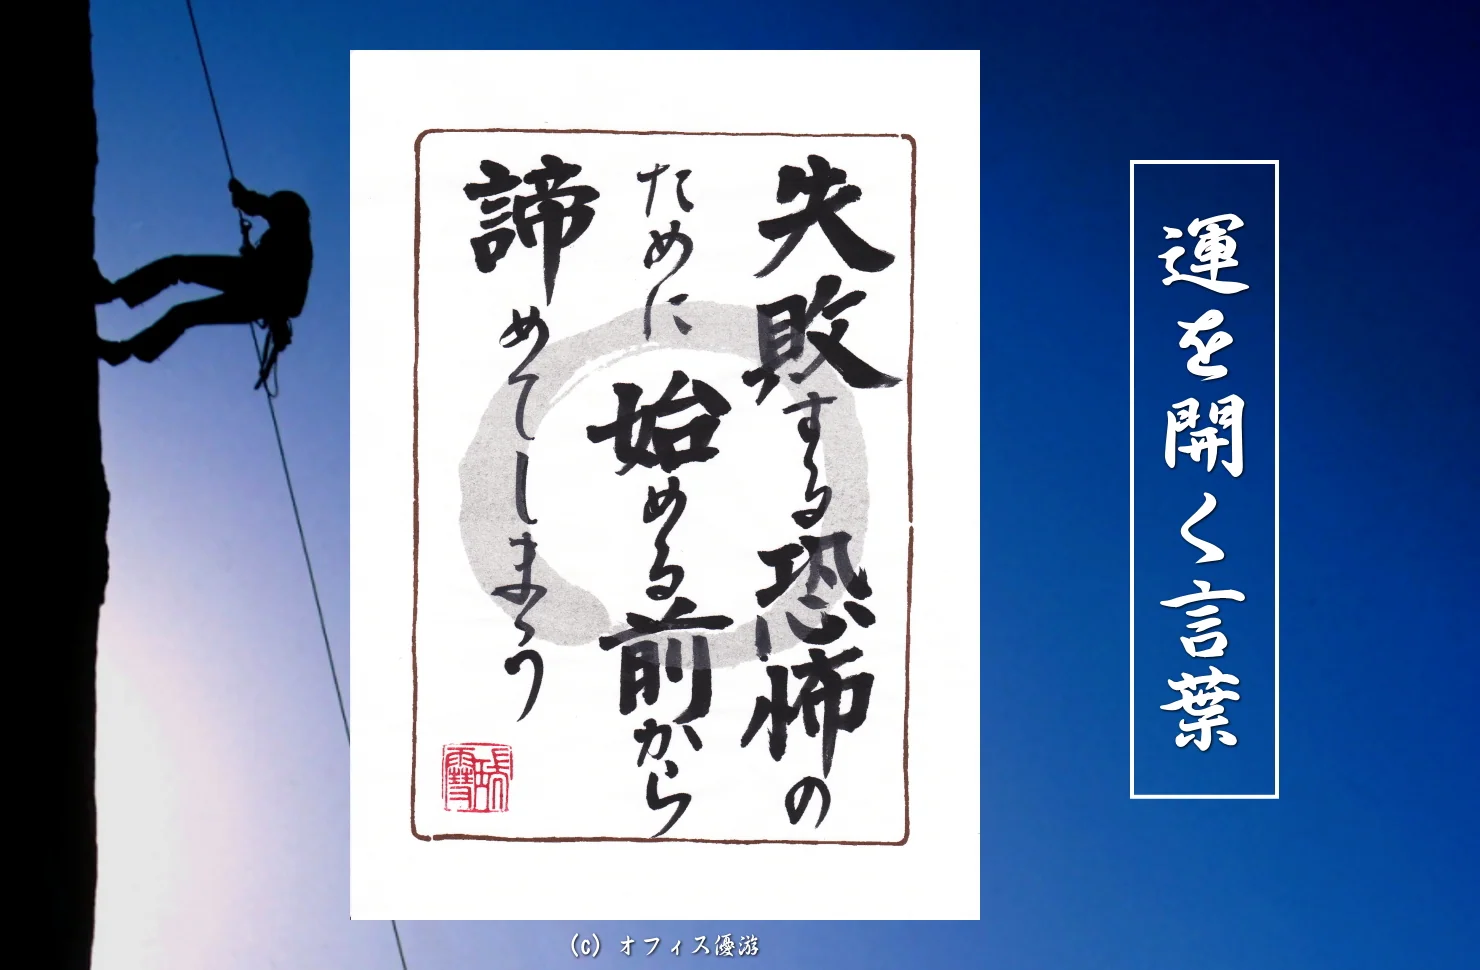 失敗する恐怖の
ために始める前から
諦めてしまう
運を開く言葉
(c) オフィス優游